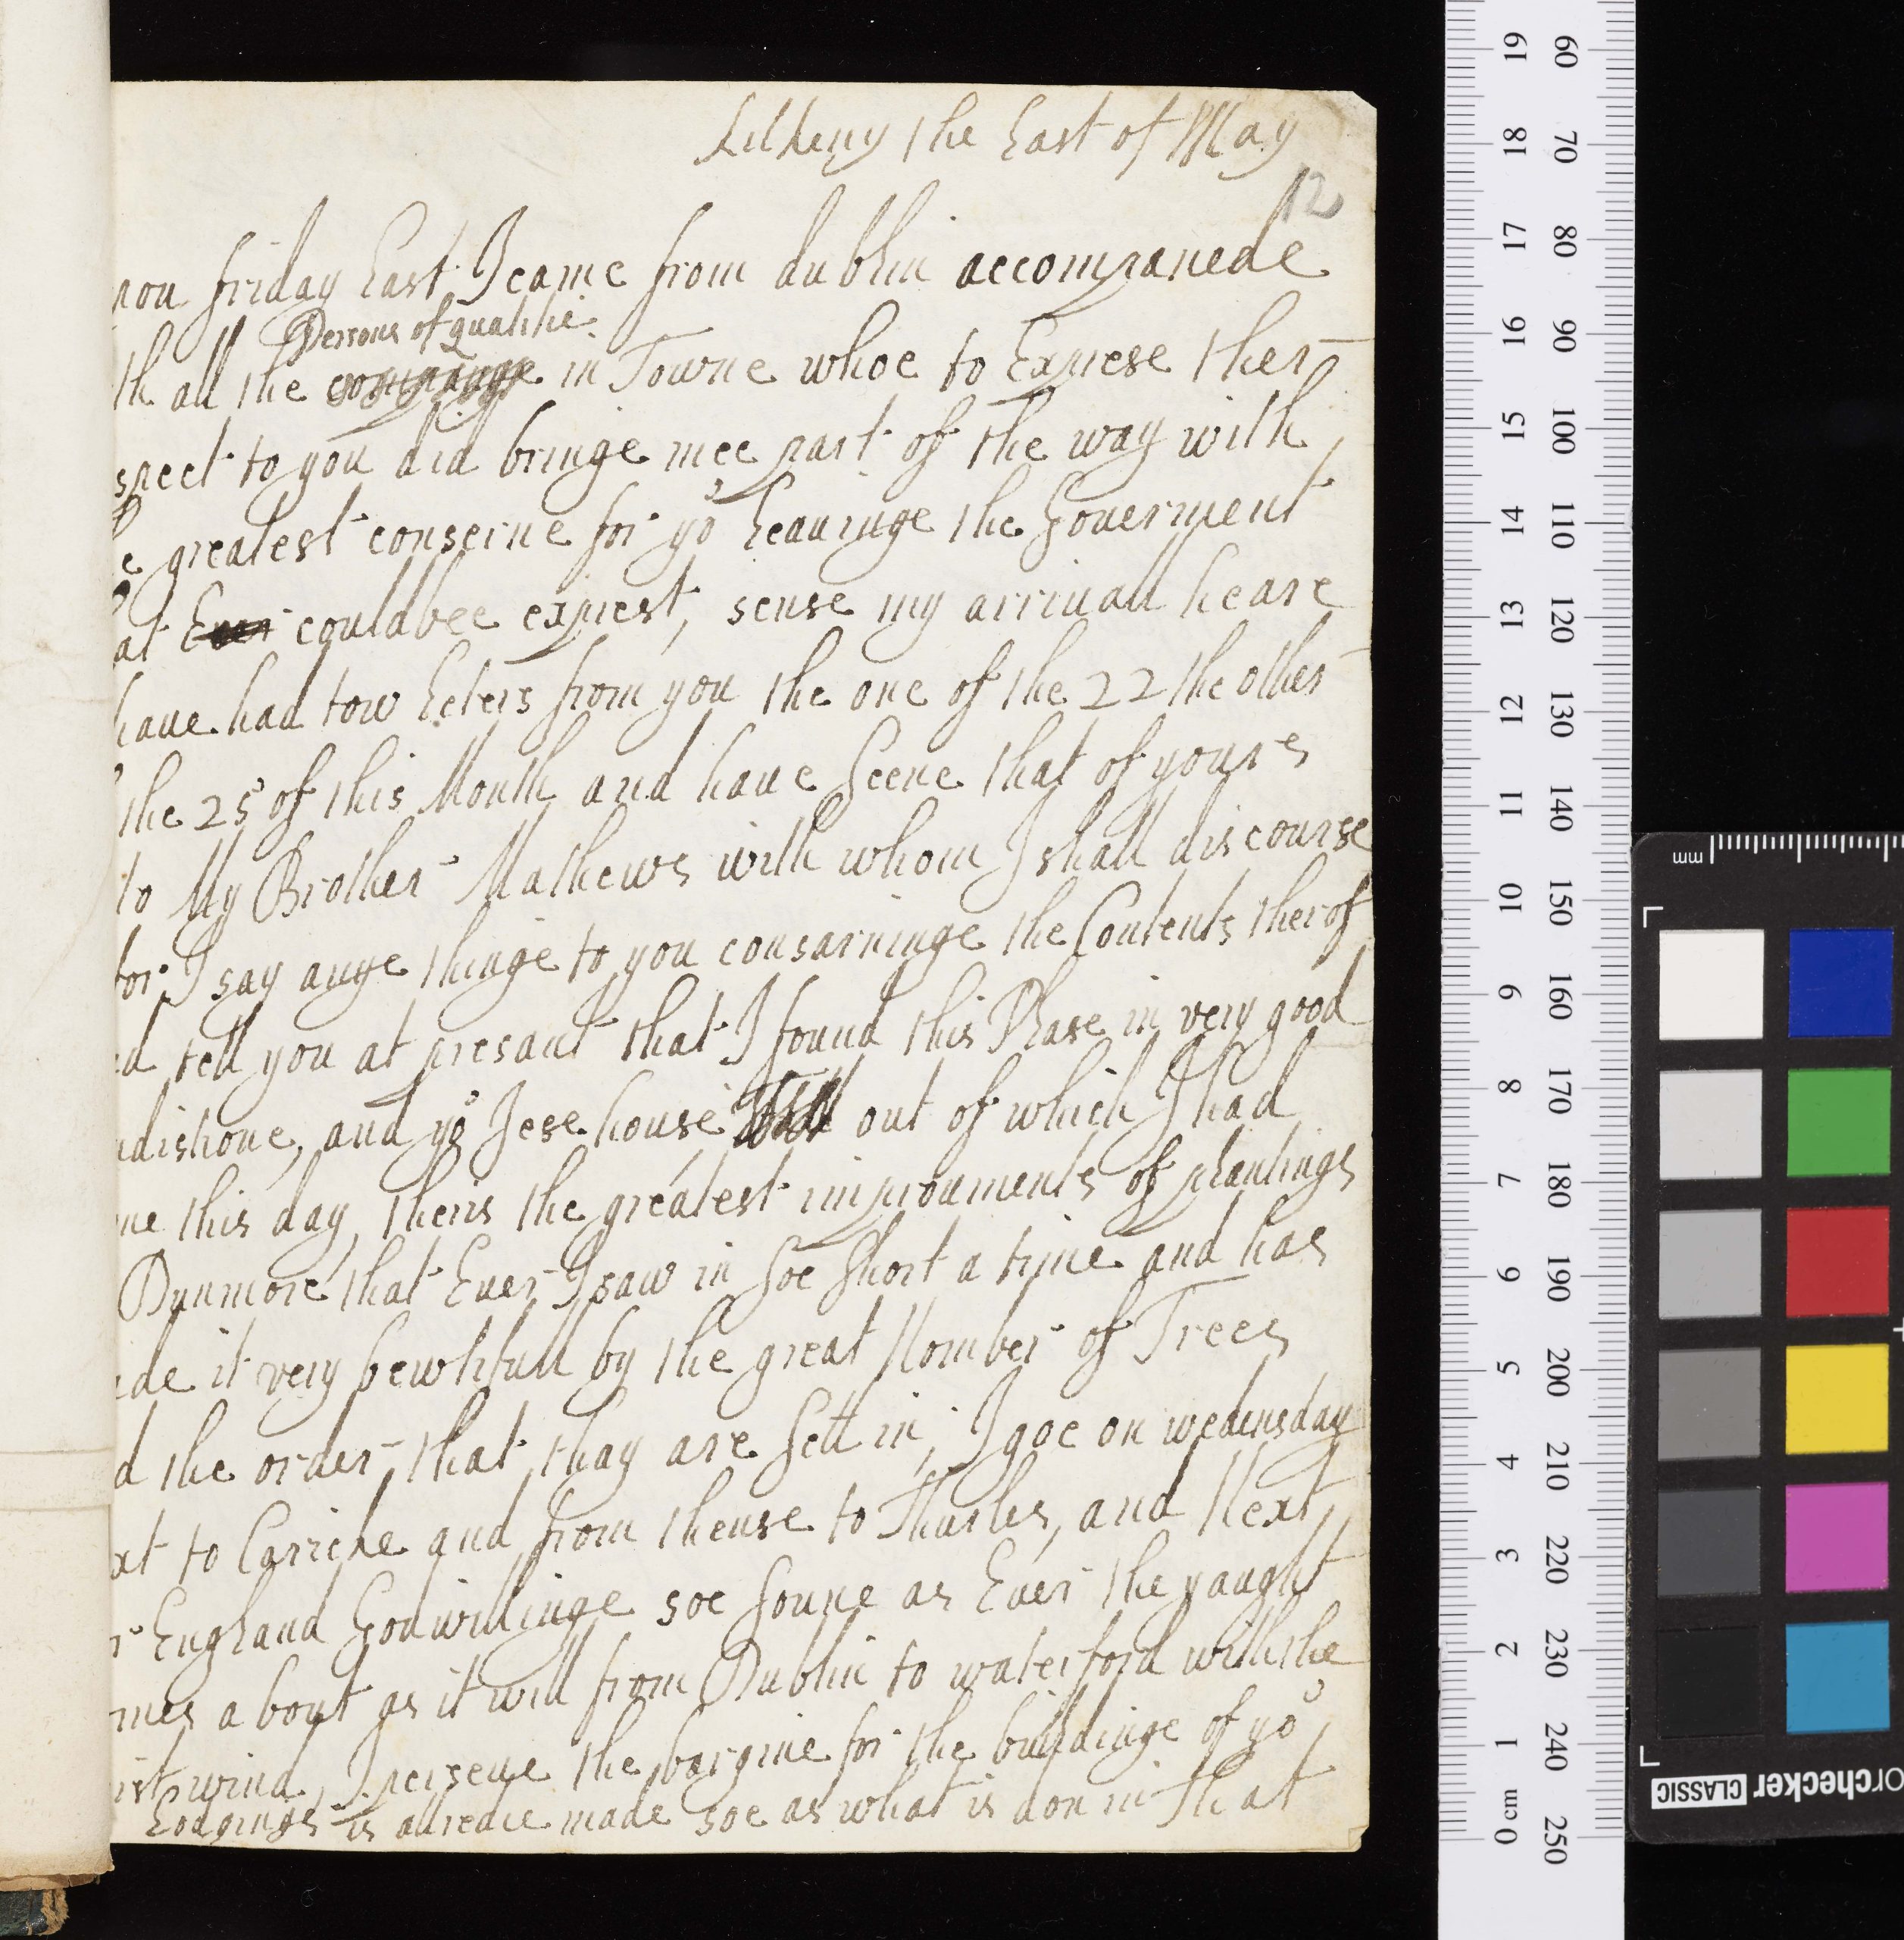 Kilkeny the Last of May
12
pon friday Last I came from dublin accompanede
Persons of qualitie
th all the companye in Towne whoe to Exprese ther
spect to you did bringe mee part of the way with
e greatest conserne for yor Leauinge the Gouerment
at Euer could bee exprest, sense my arriuall heare
haue had tow Leters from you the one of the 22 the other
the 25 of this Month and haue Seene that of yours
to My Brother Mathews with whom I shall discourse
for I say anye thinge to you consarninge the Contents therof
nd tell you at presant that I found this Plase in very good
ndishone, and yor Jese house out of which I had
me this day, theris the greatest improuments of plantings
Dunmore that Euer I saw in Soe Short a time and has
ade it very bewtifull by the great Nomber of Trees
d the order that thay are Sett in, I goe on wedensday
xt to Carricke and from thense to Thurles, and Next
r England Godwillinge soe Soune as Euer the yaught
mes about as it will from Dublin to waterford with the
ist wind, I perseue the bargine for the buildinge of yor
Lodgings is alredie made soe as what is don in That